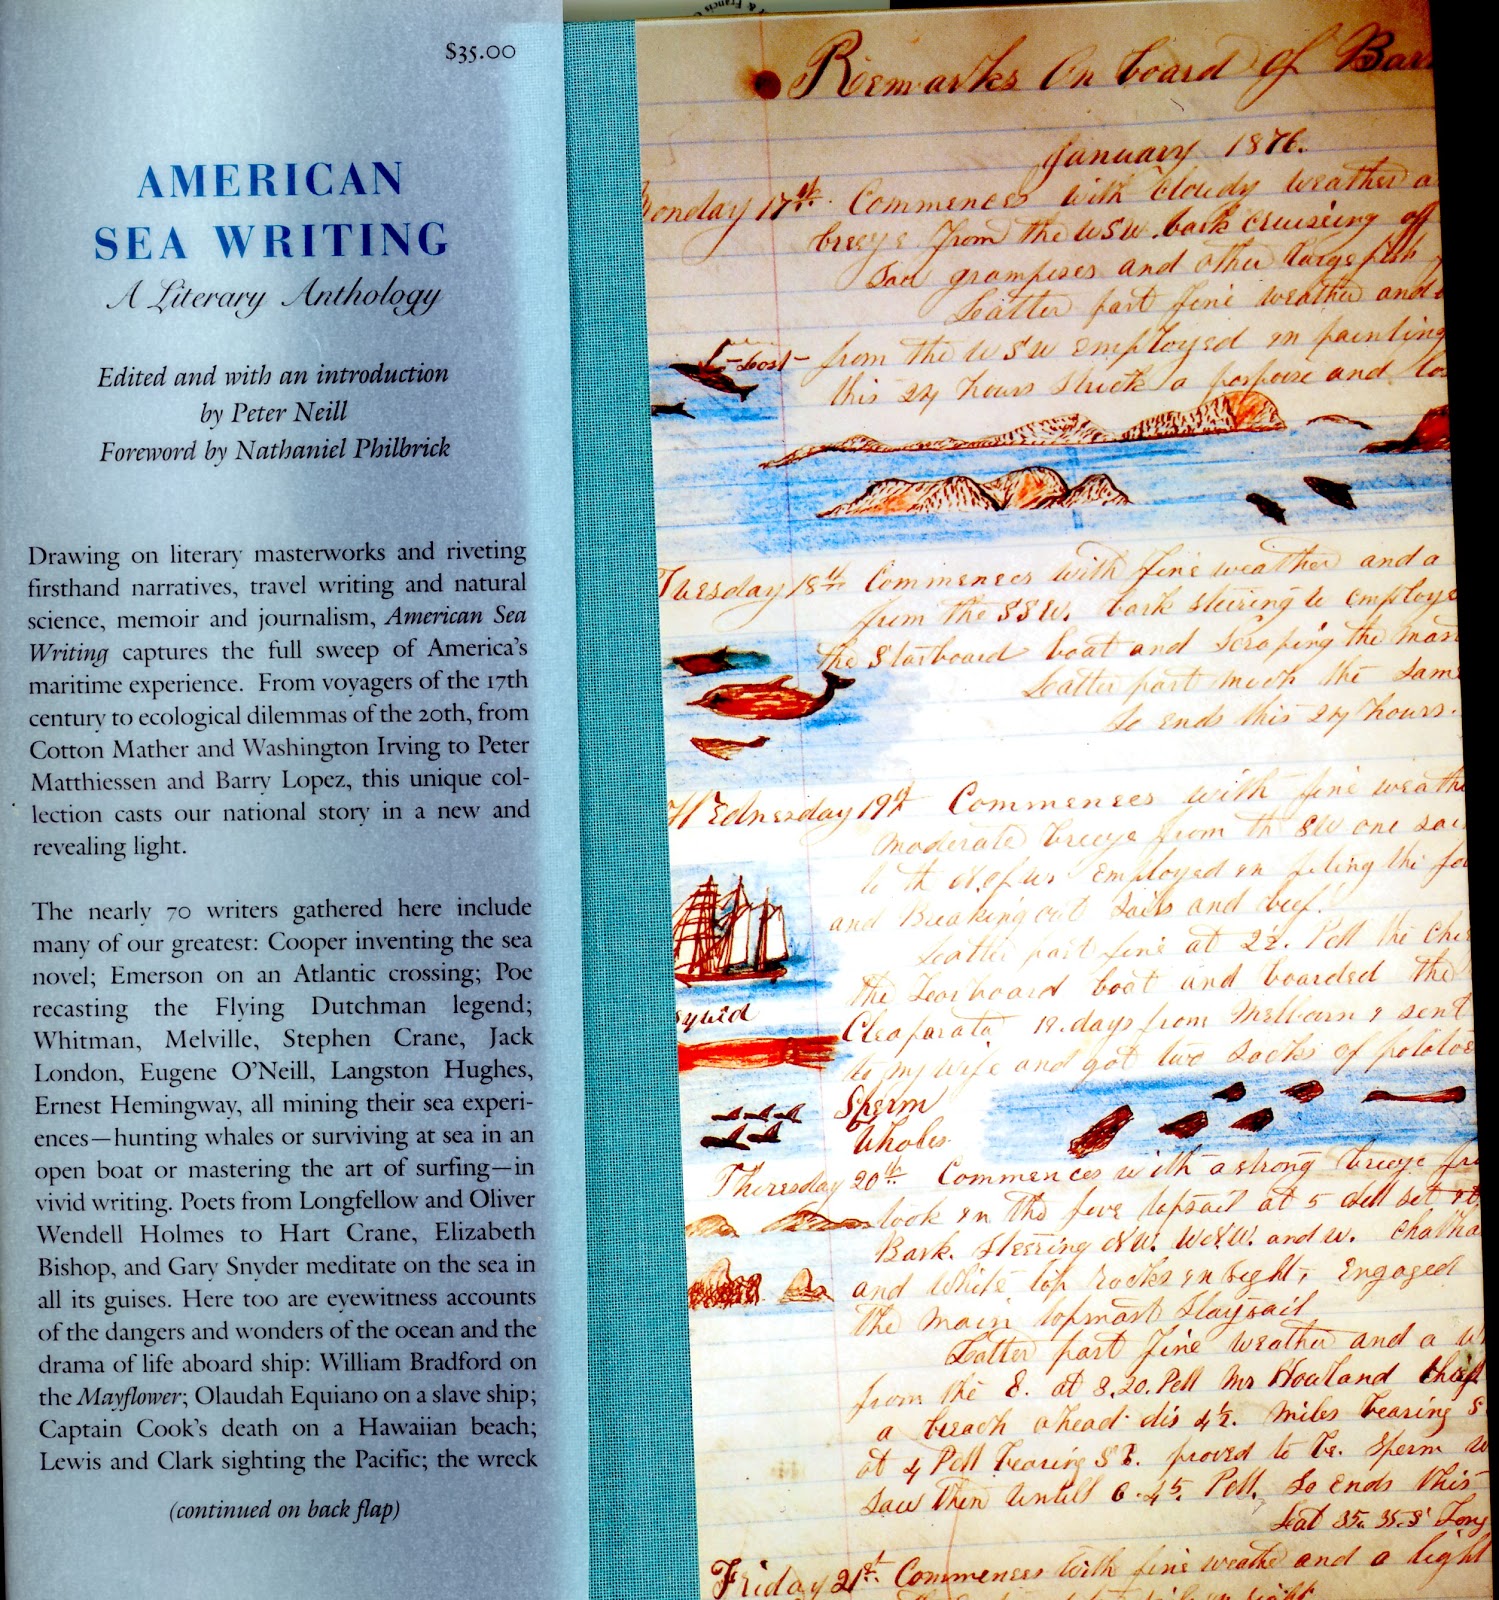 $35.00
AMERICAN
SEA WRITING
A Literary Anthology
Edited and with an introduction
by Peter Neill
Foreword by Nathaniel Philbrick
Drawing on literary masterworks and riveting
firsthand narratives, travel writing and natural
science, memoir and journalism, American Sea
Writing captures the full sweep of America's
maritime experience. From voyagers of the 17th
century to ecological dilemmas of the 20th, from
Cotton Mather and Washington Irving to Peter
Matthiessen and Barry Lopez, this unique col-
lection casts our national story in a new and
revealing light.
The nearly 70 writers gathered here include
many of our greatest: Cooper inventing the sea
novel; Emerson on an Atlantic crossing; Poe
recasting the Flying Dutchman legend;
Whitman, Melville, Stephen Crane, Jack
London, Eugene O'Neill, Langston Hughes,
Ernest Hemingway, all mining their sea experi-
ences—hunting whales or surviving at sea in an
open boat or mastering the art of surfing—in
vivid writing. Poets from Longfellow and Oliver
Wendell Holmes to Hart Crane, Elizabeth
Bishop, and Gary Snyder meditate on the sea in
all its guises. Here too are eyewitness accounts
of the dangers and wonders of the ocean and the
drama of life aboard ship: William Bradford on
the Mayflower; Olaudah Equiano on a slave ship;
Captain Cook's death on a Hawaiian beach;
Lewis and Clark sighting the Pacific; the wreck
(continued on back flap)
& Francis
Remarks On board of Bar
January 1876.
onday 17th. Commences with cloudy weather a
breeze from the WSW. bark cruiseing off
Saw grampuses and other large fish
Latter part fine weather and
lost from the WSW employed in painting
this 24 hours Struck a porpoise and los
Tuesday 18th Commences with fine weather and a
from the SSW. bark steering to employe
the Starboard boat and scraping the mas
Latter part much the Sam
So ends this 24 hours.
Wednesday 19th Commences with fine weathe
moderate breeze from th SW one sai
to th of us employed in
and Breaking out Sails and beef.
Latter part fine at 2½. PM the
the Larboard boat and boarded the
19. days from sent
to my wife and got two sacks of potatoe
Sperm
Whales
Thursday 20th Commences with a strong breeze fr
took in the fore topsail at 5 set
Bark. Steering NW. WNW. and W. Chatha
and White top rocks in Sight, Engaged
the main topmast Staysail
Latter part fine weather and a
from the E. at 3.20. PM Mr Howland
a breach ahead dis 4½. miles bearing S
at 4 PM bearing SE. proved to be. Sperm w
Saw them Untill 6.45. PM. So Ends this
Lat 35. 35. S Long
Friday 21st. Commences with fine weathe and a light